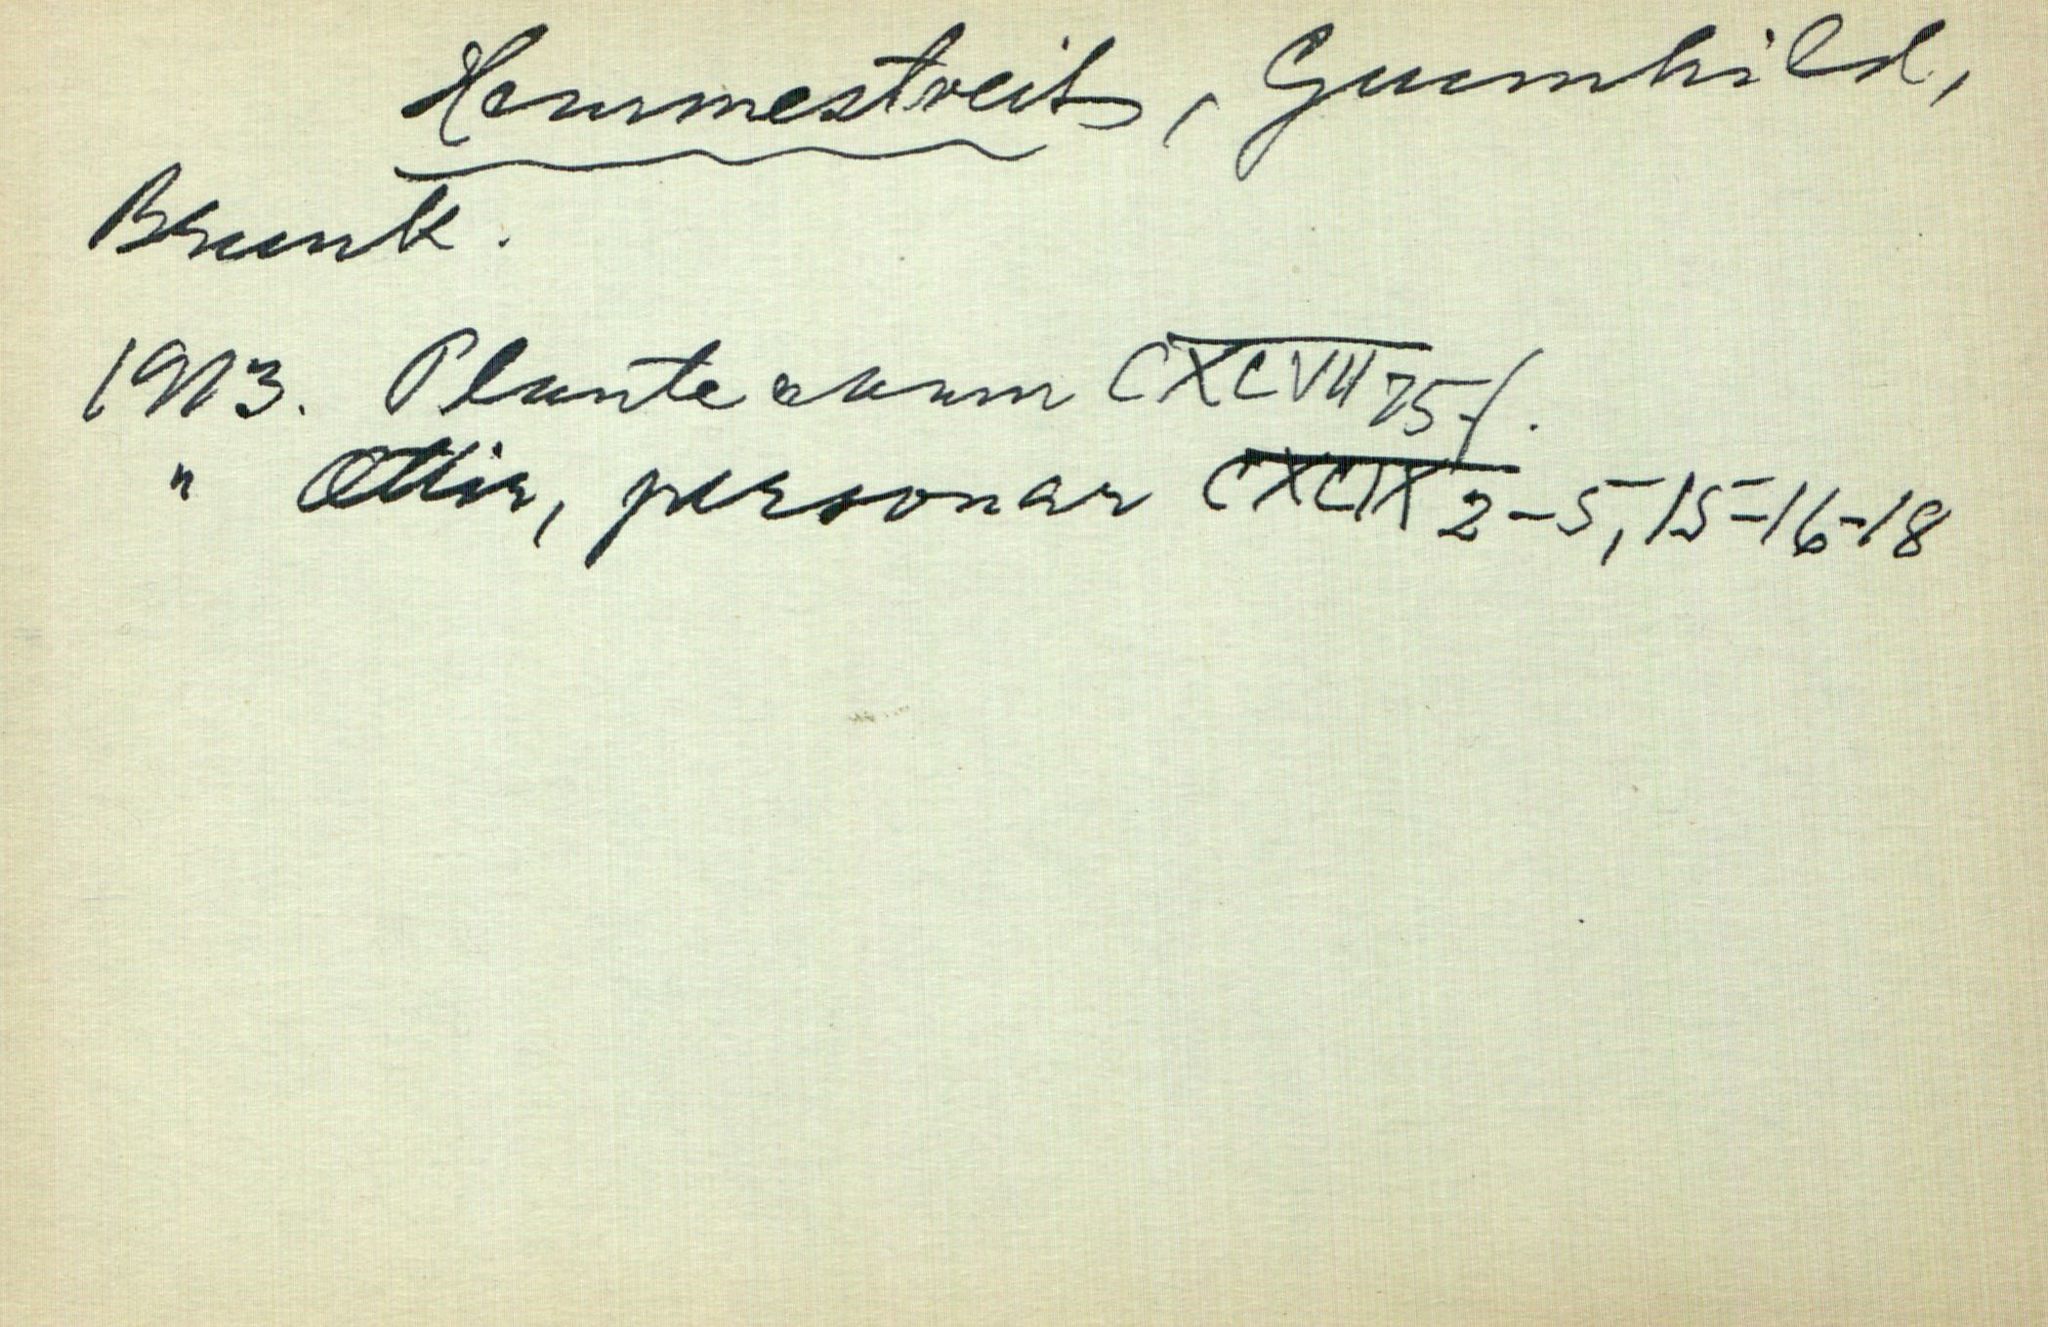 Hemmestveit, Gunnhild,
Brunk.
1913. Plantenamn CXCVII 75 f.
" Ættir, personar CXCIX 2-5, 15-16-18